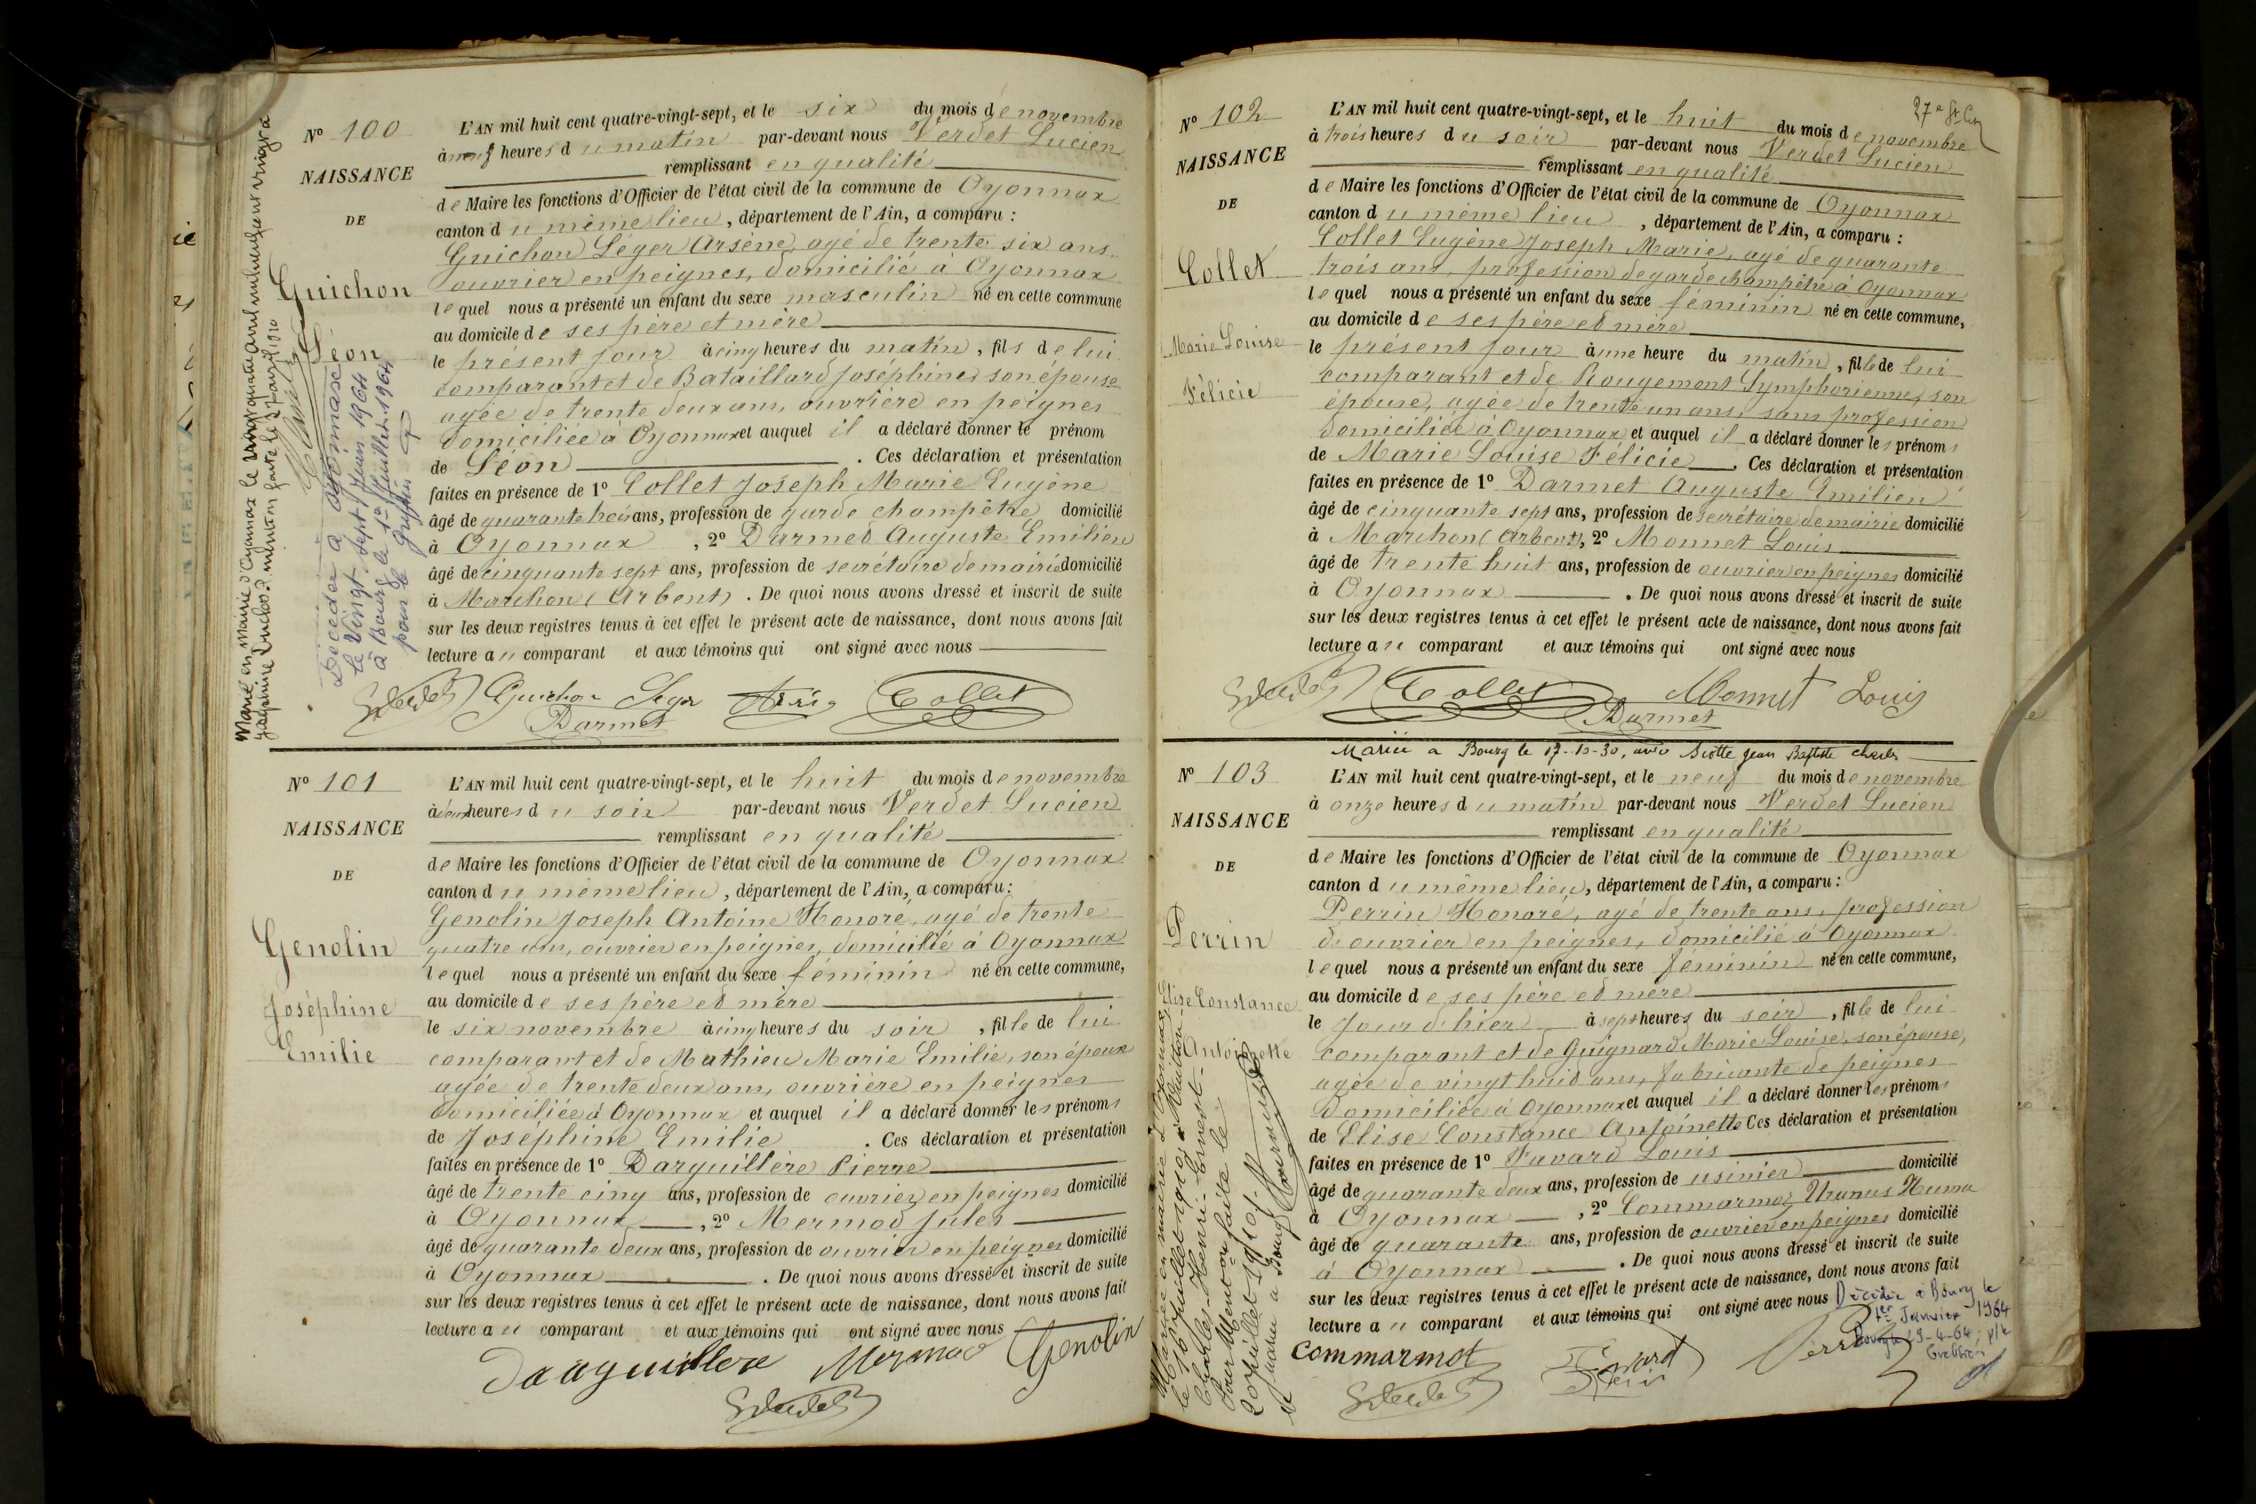 N° 100
NAISSANCE
DE
Guichon
Léon
L'AN mil huit cent quatre-vingt-sept, et le six du mois de novembre
à neuf heures du matin par-devant nous Verdet Lucien
remplissant en qualité
de Maire les fonctions d'Officier de l'état civil de la commune de Oyonnax
canton du même lieu, département de l'Ain, a comparu :
Guichon Léger Arsène, agé de trente six ans
ouvrier en peignes, domicilié à Oyonnax
lequel nous a présenté un enfant du sexe masculin né en cette commune
au domicile de ses père et mère
le présent jour à cinq heures du matin, fils de lui
comparant et de Bataillard Joséphine son épouse
agée de trente deux ans, ouvrière en peignes
domiciliée à Oyonnax et auquel il a déclaré donner le prénom
de Léon . Ces déclaration et présentation
faites en présence de 1° Collet Joseph Marie Eugène
âgé de quarante trois ans, profession de garde champêtre domicilié
à Oyonnax , 2° Darmet Auguste Emilien
âgé de cinquante sept ans, profession de secrétaire de mairie domicilié
à Marchon (Arbent) . De quoi nous avons dressé et inscrit de suite
sur les deux registres tenus à cet effet le présent acte de naissance, dont nous avons fait
lecture au comparant et aux témoins qui ont signé avec nous
Guichon Léger Collet
Darmet
Marié en Mairie d'Oyonnax le
mention faite le
Décédé à Oyonnax
le Vingt-Sept Juin 1964
à Bourg le 1er Juillet 1964
pour le Greffier
N° 101
NAISSANCE
DE
Genolin
Joséphine
Emilie
L'AN mil huit cent quatre-vingt-sept, et le huit du mois de novembre
à deux heures du soir par-devant nous Verdet Lucien
remplissant en qualité
de Maire les fonctions d'Officier de l'état civil de la commune de Oyonnax
canton du même lieu, département de l'Ain, a comparu :
Genolin Joseph Antoine Honoré, agé de trente
quatre ans, ouvrier en peignes, domicilié à Oyonnax
lequel nous a présenté un enfant du sexe féminin né en cette commune,
au domicile de ses père et mère
le six novembre à cinq heures du soir, fille de lui
comparant et de Mathieu Marie Emilie, son épouse
agée de trente deux ans, ouvrière en peignes
domiciliée à Oyonnax et auquel il a déclaré donner les prénoms
de Joséphine Emilie . Ces déclaration et présentation
faites en présence de 1° Darguillère Pierre
âgé de trente cinq ans, profession de ouvrier en peignes domicilié
à Oyonnax , 2° Mermod Jules
âgé de quarante deux ans, profession de ouvrier en peignes domicilié
à Oyonnax . De quoi nous avons dressé et inscrit de suite
sur les deux registres tenus à cet effet le présent acte de naissance, dont nous avons fait
lecture au comparant et aux témoins qui ont signé avec nous
Mermod Genolin
N° 102
NAISSANCE
DE
Collet
Marie Louise
Félicie
L'AN mil huit cent quatre-vingt-sept, et le huit du mois de novembre
à trois heures du soir par-devant nous Verdet Lucien
remplissant en qualité
de Maire les fonctions d'Officier de l'état civil de la commune de Oyonnax
canton du même lieu , département de l'Ain, a comparu :
Collet Eugène Joseph Marie, agé de quarante
trois ans, profession de garde champêtre à Oyonnax
lequel nous a présenté un enfant du sexe féminin né en cette commune,
au domicile de ses père et mère
le présent jour à une heure du matin, fille de lui
comparant et de Rougemont Symphorienne, son
épouse, agée de trente un ans, sans profession
domiciliée à Oyonnax et auquel il a déclaré donner les prénoms
de Marie Louise Félicie . Ces déclaration et présentation
faites en présence de 1° Darmet Auguste Emilien
âgé de cinquante sept ans, profession de secrétaire de mairie domicilié
à Marchon (Arbent), 2° Monnet Louis
âgé de trente huit ans, profession de ouvrier en peignes domicilié
à Oyonnax . De quoi nous avons dressé et inscrit de suite
sur les deux registres tenus à cet effet le présent acte de naissance, dont nous avons fait
lecture au comparant et aux témoins qui ont signé avec nous
Collet Monnet Louis
Darmet
Mariée a Bourg le 17-10-30, avec Jean Baptiste Charles
N° 103
NAISSANCE
DE
Perrin
Elise Constance
Antoinette
L'AN mil huit cent quatre-vingt-sept, et le neuf du mois de novembre
à onze heures du matin par-devant nous Verdet Lucien
remplissant en qualité
de Maire les fonctions d'Officier de l'état civil de la commune de Oyonnax
canton du même lieu, département de l'Ain, a comparu :
Perrin Honoré, agé de trente ans, profession
d'ouvrier en peignes, domicilié à Oyonnax
lequel nous a présenté un enfant du sexe féminin né en cette commune,
au domicile de ses père et mère
le jour d'hier à sept heures du soir, fille de lui
comparant et de Guignard Marie Louise, son épouse,
agée de vingt huit ans, fabricante de peignes
domiciliée à Oyonnax et auquel il a déclaré donner les prénoms
de Elise Constance Antoinette Ces déclaration et présentation
faites en présence de 1° Favard Louis
âgé de quarante deux ans, profession de usinier domicilié
à Oyonnax , 2° Commarmot Uranus Numa
âgé de quarante ans, profession de ouvrier en peignes domicilié
à Oyonnax . De quoi nous avons dressé et inscrit de suite
sur les deux registres tenus à cet effet le présent acte de naissance, dont nous avons fait
lecture au comparant et aux témoins qui ont signé avec nous
Commarmot
Mariée en mairie d'Oyonnax
le 16 juillet 1910
Charles-Henri-Ernest
Pour Mention faite le
20 juillet 1910
Décédée à Bourg le
1er Janvier 1964